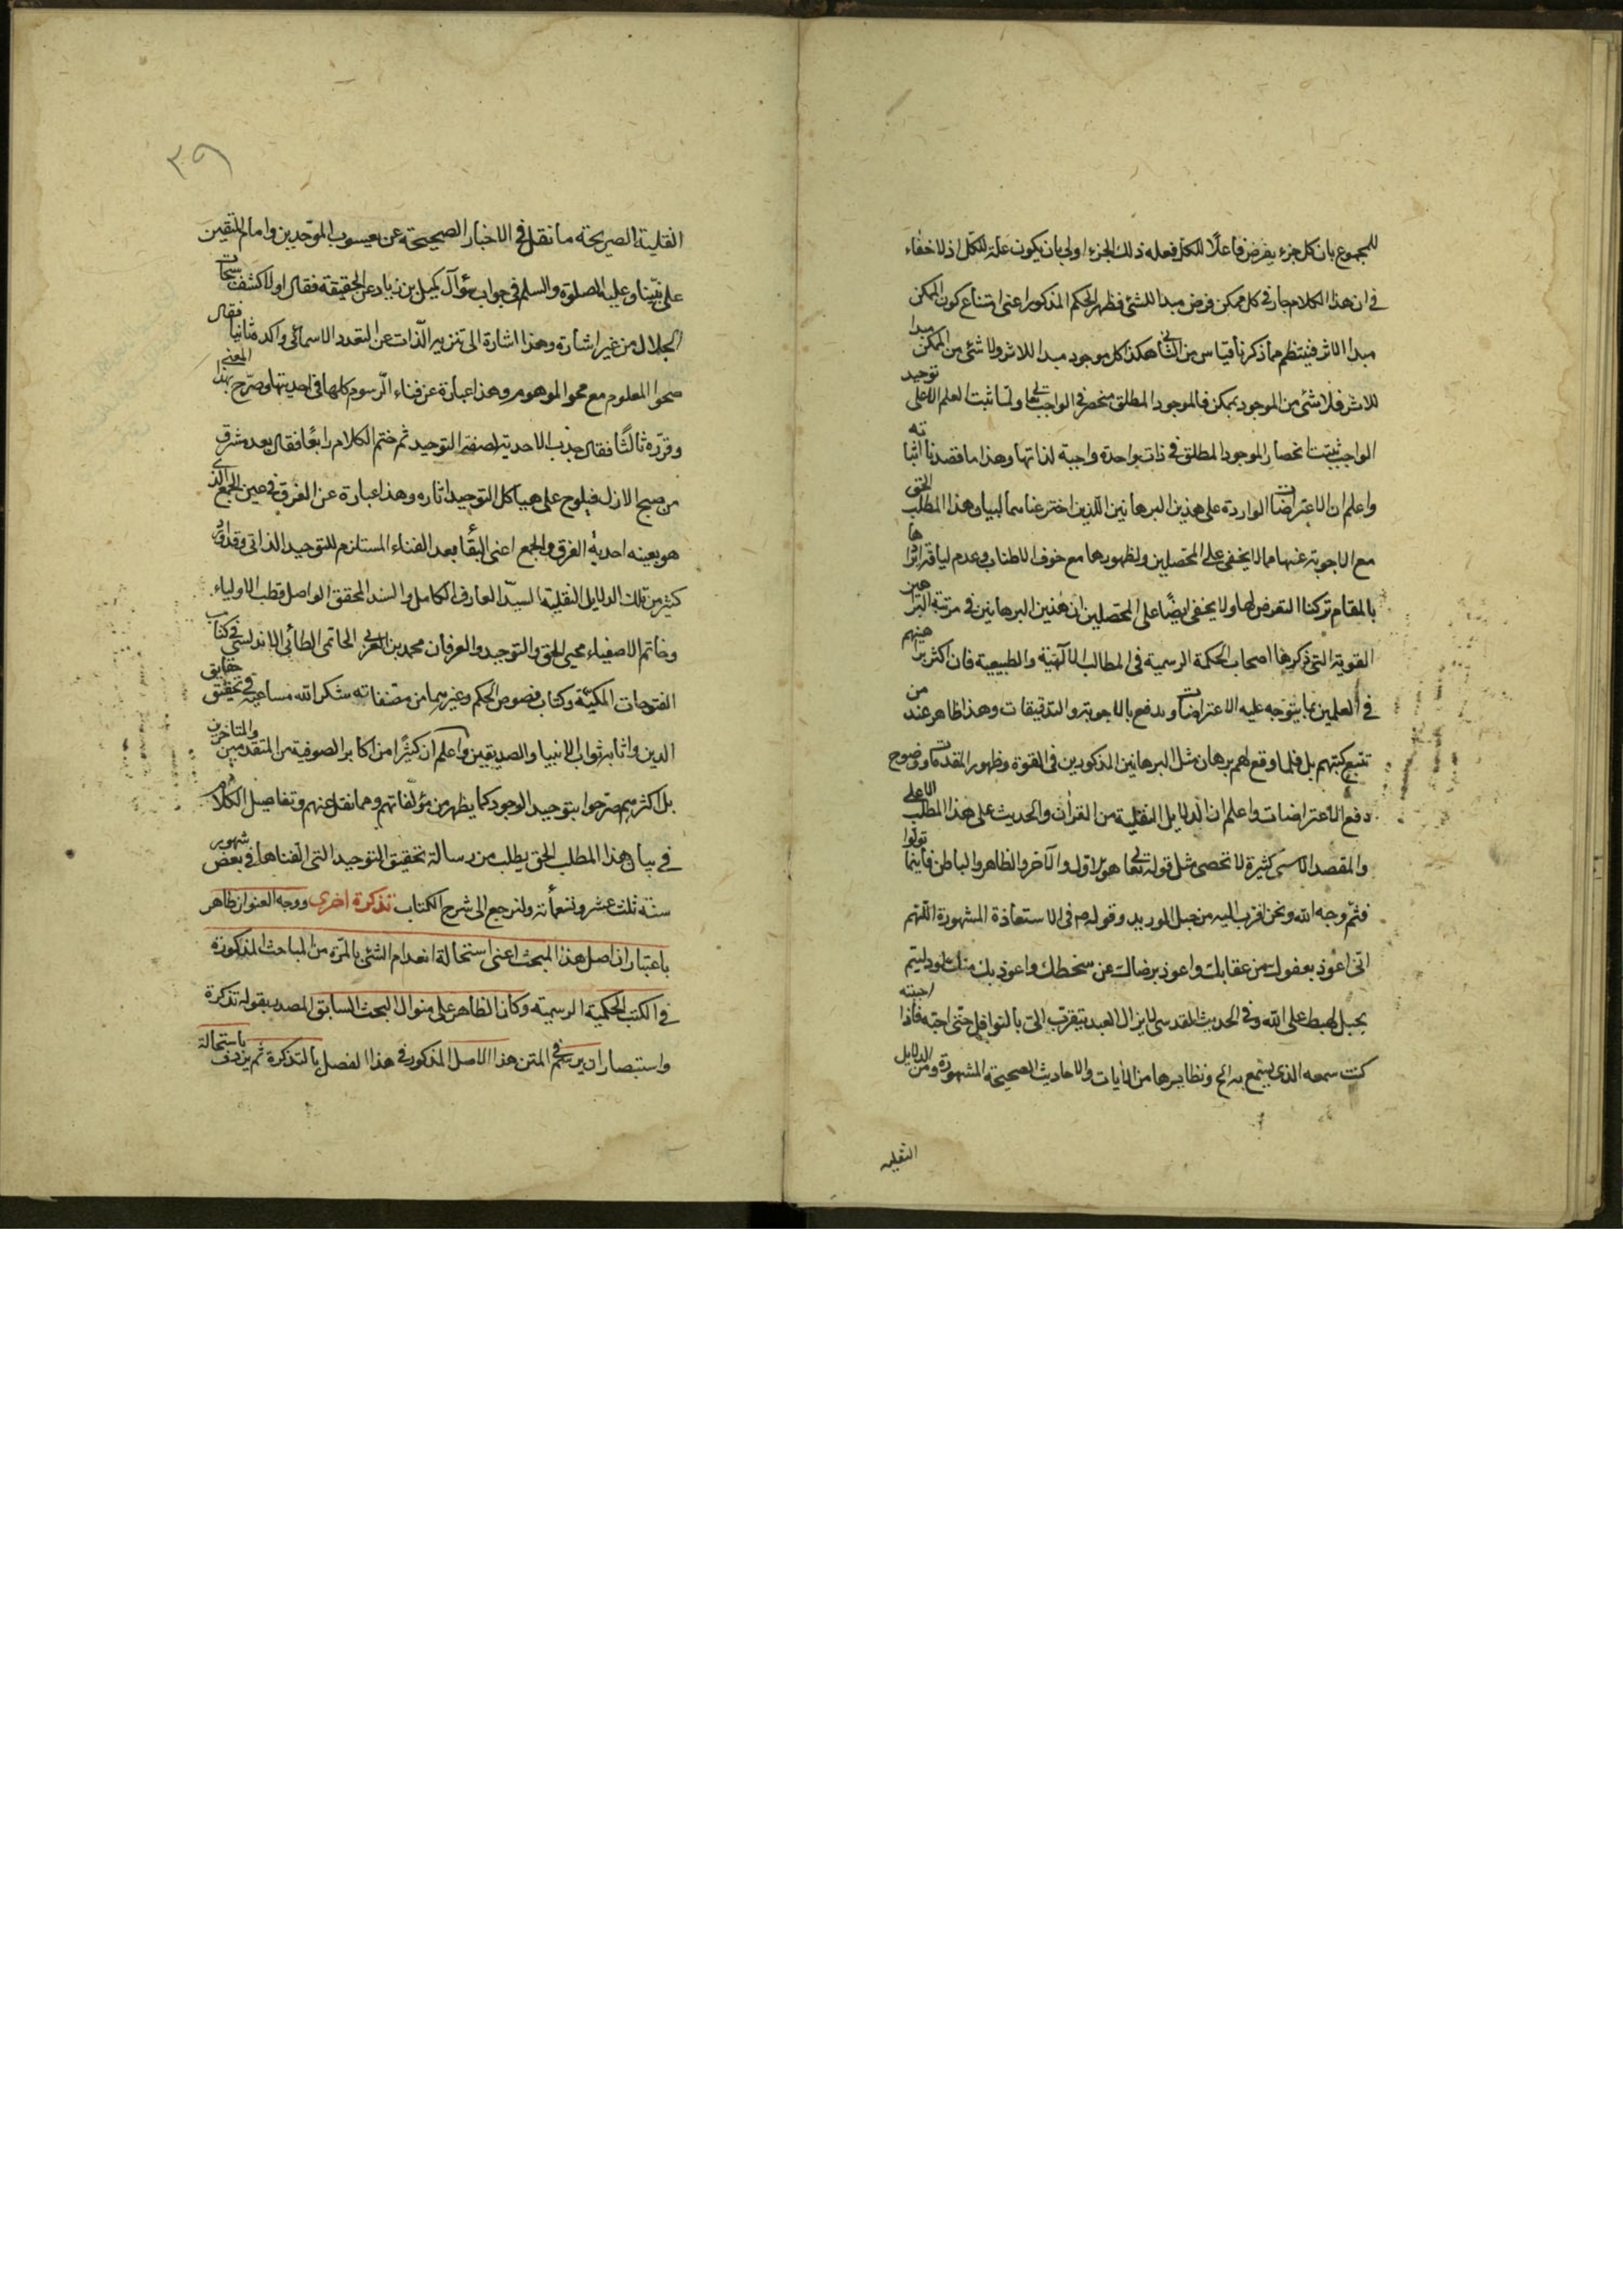 للمجموع بان كل جزء يفرض فاعلًا للكل فعلة ذلك الجزء اولى بان يكون علة للكل اذ لا خفاء
فى ان هذا الكلام جار فى كل ممكن فرض مبدا للشئ فظهر الحكم المذكور اعنى امتناع كون الممكن
مبدا الاثر فينتظم مما ذكرنا قياس من الثانى هكذا كل موجود مبدا للاثر ولا شئ من الممكن مبدا
للاثر فلا شئ من الموجود بممكن فالموجود المطلق منحصر فى الواجب تعالى ولما ثبت لعلم الاعلى توحيد
الواجب ثبت انحصار الموجود المطلق فى ذات واحدة واجبة لذاتها وهذا ما قصدنا اثباته
واعلم ان الاعتراضات الواردة على هذين البرهانين اللذين اخترعناهما لبيان هذا المطلب الحق
مع الاجوبة عنها مما لا يخفى على المحصلين ولظهورها مع خوف الاطناب وعدم لياقة ايرادها
بالمقام تركنا التعرض لها ولا يخفى ايضًا على المحصلين ان هذين البرهانين فى مرتبة البراهين
القوية التى ذكرها اصحاب الحكمة الرسمية فى المطالب الالهية والطبيعية فان اكثر براهينهم
فى العلمين مما يتوجه عليه الاعتراضات ويدفع بالاجوبة والتدقيقات وهذا ظاهر عند من
تتبع كتبهم بل قلما وقع لهم برهان مثل البرهانين المذكورين فى القوة وظهور المقدمات ووضوح
دفع الاعتراضات واعلم ان الدلايل النقلية من القرآن والحديث على هذا المطلب الاعلى
والمقصد الاسمى كثيرة لا تحصى مثل قوله تعالى هو الاول والآخر والظاهر والباطن فاينما تولوا
فثم وجه الله ونحن اقرب اليه من حبل الوريد وقوله ص فى الاستعاذة المشهورة اللهم
انى اعوذ بعفوك من عقابك واعوذ برضاك عن سخطك واعوذ بك منك لو دليتم
بحبل لهبط على الله وفى الحديث القدسى لا يزال العبد يتقرب الىّ بالنوافل حتى احبه فاذا احببته
كنت سمعه الذى يسمع به الخ ونظايرها من الآيات والاحاديث الصحيحة المشهورة ومن الدلايل
النقلية
٣٩
النقلية الصريحة ما نقل فى الاخبار الصحيحة عن يعسوب الموحدين وامام المتقين
على نبينا وعليه الصلوة والسلم فى جواب سؤال كميل بن زياد عن الحقيقة فقال اولا كشف سبحات
الجلال من غير اشارة وهذا اشارة الى تنزيه الذات عن التعدد الاسمائى واكده ثانيا فقال
صحو المعلوم مع محو الموهوم وهذا عبارة عن فناء الرسوم كلها فى احديتها وصرح بهذا المعنى
وقرره ثالثًا فقال جذب الاحدية لصفة التوحيد ثم ختم الكلام رابعًا فقال بعد مشرق
من صبح الازل فيلوح على هياكل التوحيد اثاره وهذا عبارة عن الفرق فى عين الجمع الذى
هو بعينه احدية الفرق والجمع اعنى البقاء بعد الفناء المستلزم للتوحيد الذاتى وقد اورد
كثير من تلك الدلايل النقلية السيد العارف الكامل والسند المحقق الواصل قطب الاولياء
وخاتم الاصفياء محيى الحق والتوحيد والعرفان محمد بن العربى الحاتمى الطائى الاندلسى فى كتاب
الفتوحات المكية وكتاب فصوص الحكم وغيرهما من مصنفاته شكر الله مساعيه فى تحقيق حقايق
الدين واثابه ثواب الانبيا والصديقين واعلم ان كثيرًا من اكابر الصوفية من المتقدمين والمتاخرين
بل اكثرهم صرحوا بتوحيد الوجود كما يظهر من مؤلفاتهم ومما نقل عنهم وتفاصيل الكلام
فى بيان هذا المطلب الحق يطلب من رسالة تحقيق التوحيد التى الفناها فى بعض شهور
سنة ثلث عشر وتسعمائة ولنرجع الى شرح الكتاب تذكرة اخرى ووجه العنوان ظاهر
باعتبار ان اصل هذا المبحث اعنى استحالة انعدام الشئ بالمرة من المباحث المذكورة
فى الكتب الحكمية الرسمية وكان الظاهر على منوال البحث السابق المصدر بقوله تذكرة
واستبصار ان يرسم فى المتن هذا الاصل المذكور فى هذا الفصل بالتذكرة ثم يردف باستحالة